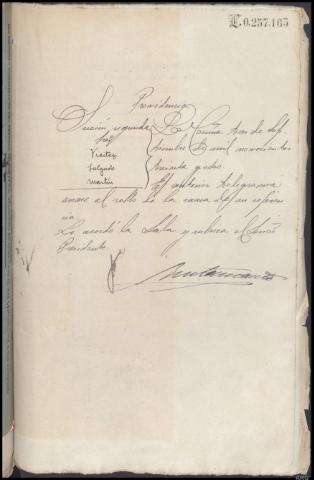 E.0.257.165
Providencia
Sección segunda
Sres
Vieitez
Salgado
Martín
La Coruña tres de Sep-
tiembre de mil novecientos
treinta y dos.
El anterior telegrama
únase al rollo de la causa de su referen
cia
Lo acordó la Sala y rubrica el Señor
Presidente